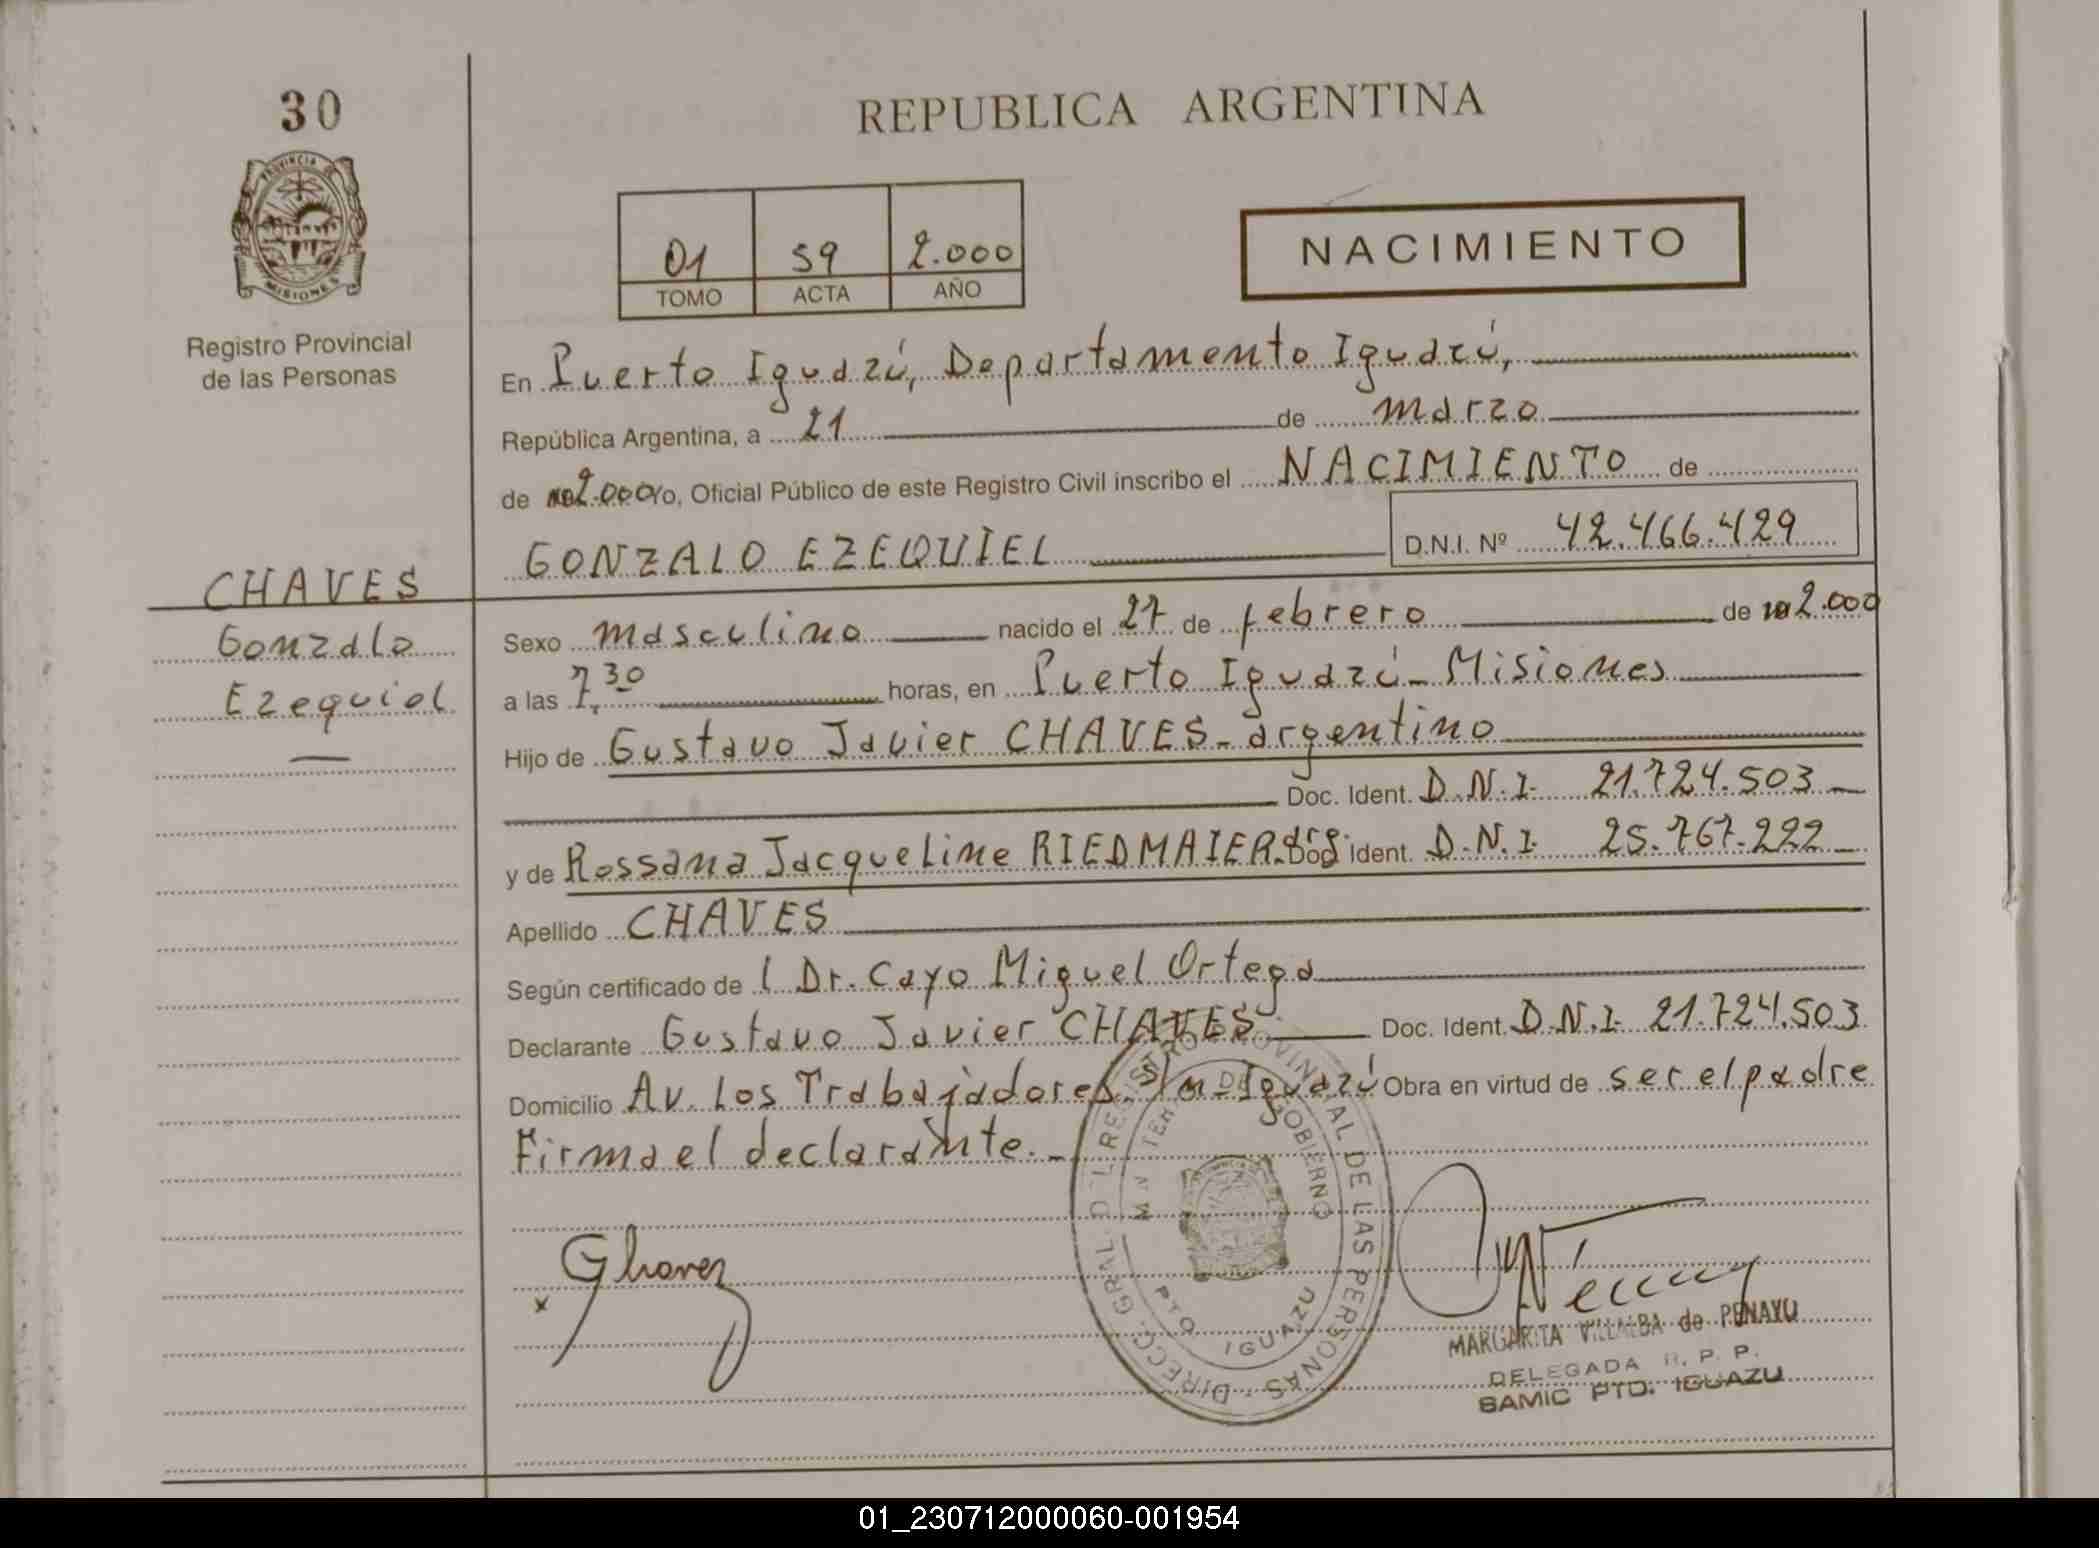 30
REPUBLICA ARGENTINA
PROVINCIA DE
MISIONES
01 59 2.000
TOMO ACTA AÑO
NACIMIENTO
Registro Provincial
de las Personas
En Puerto Iguazú, Departamento Iguazú,
República Argentina, a 21 de marzo
de 2.000 yo, Oficial Público de este Registro Civil inscribo el NACIMIENTO de
GONZALO EZEQUIEL D.N.I. Nº 42.466.429
CHAVES
Gonzalo
Ezequiel
Sexo masculino nacido el 27 de febrero de 2.000
a las 7,30 horas, en Puerto Iguazú - Misiones
Hijo de Gustavo Javier CHAVES - argentino
Doc. Ident. D.N.I. 21.724.503
y de Rossana Jacqueline RIEDMAIER - arg. Doc. Ident. D.N.I. 25.767.222
Apellido CHAVES
Según certificado de l Dr. Cayo Miguel Ortega
Declarante Gustavo Javier CHAVES Doc. Ident. D.N.I. 21.724.503
Domicilio Av. Los Trabajadores s/n - Iguazú Obra en virtud de ser el padre
Firma el declarante.-
x GChavez
DIRECC. GRAL. DEL REGISTRO PROVINCIAL DE LAS PERSONAS
DE GOBIERNO
PTO IGUAZU
MARGARITA VILLALBA de PENAYO
DELEGADA R. P. P.
SAMIC PTO. IGUAZU
01_230712000060-001954